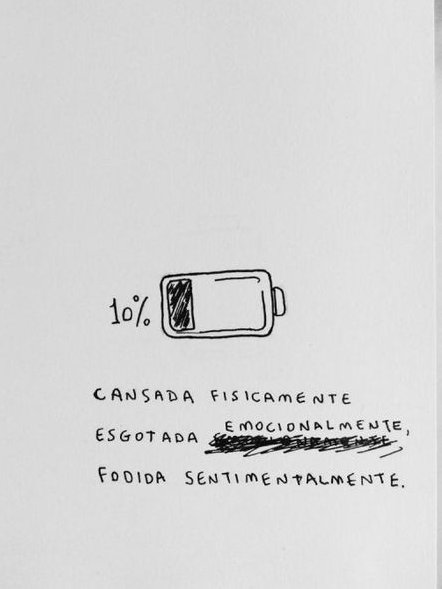 10%
CANSADA FISICAMENTE
ESGOTADA EMOCIONALMENTE,
FODIDA SENTIMENTALMENTE.